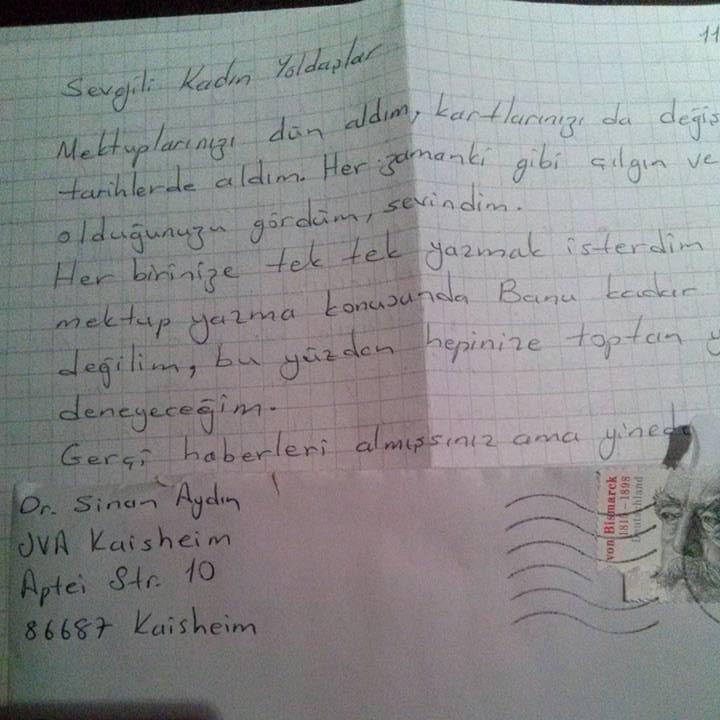 11
Sevgili Kadın Yoldaşlar
Mektuplarınızı dün aldım, kartlarınızı da değiş
tarihlerde aldım. Her zamanki gibi çılgın ve
olduğunuzu gördüm, sevindim.
Her birinize tek tek yazmak isterdim
mektup yazma konusunda Banu kadar
değilim, bu yüzden hepinize toptan y
deneyeceğim.
Gerçi haberleri almışsınız ama yinede
Dr. Sinan Aydın
JVA Kaisheim
Abtei Str. 10
86687 Kaisheim
von Bismarck
1815 – 1898
Deutschland